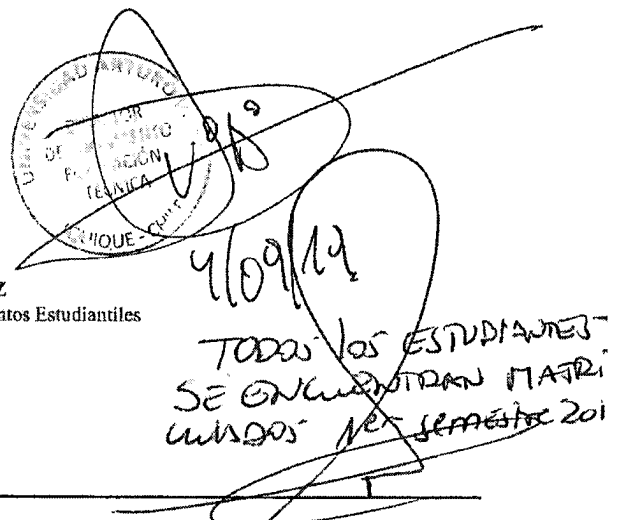 UNIVERSIDAD ARTURO
TÉCNICA
IQUIQUE - CHILE
V°B°
4/09/19
z
ntos Estudiantiles
TODOS los ESTUDIANTES
SE ENCUENTRAN MATRI
CULADOS 1er semestre 201